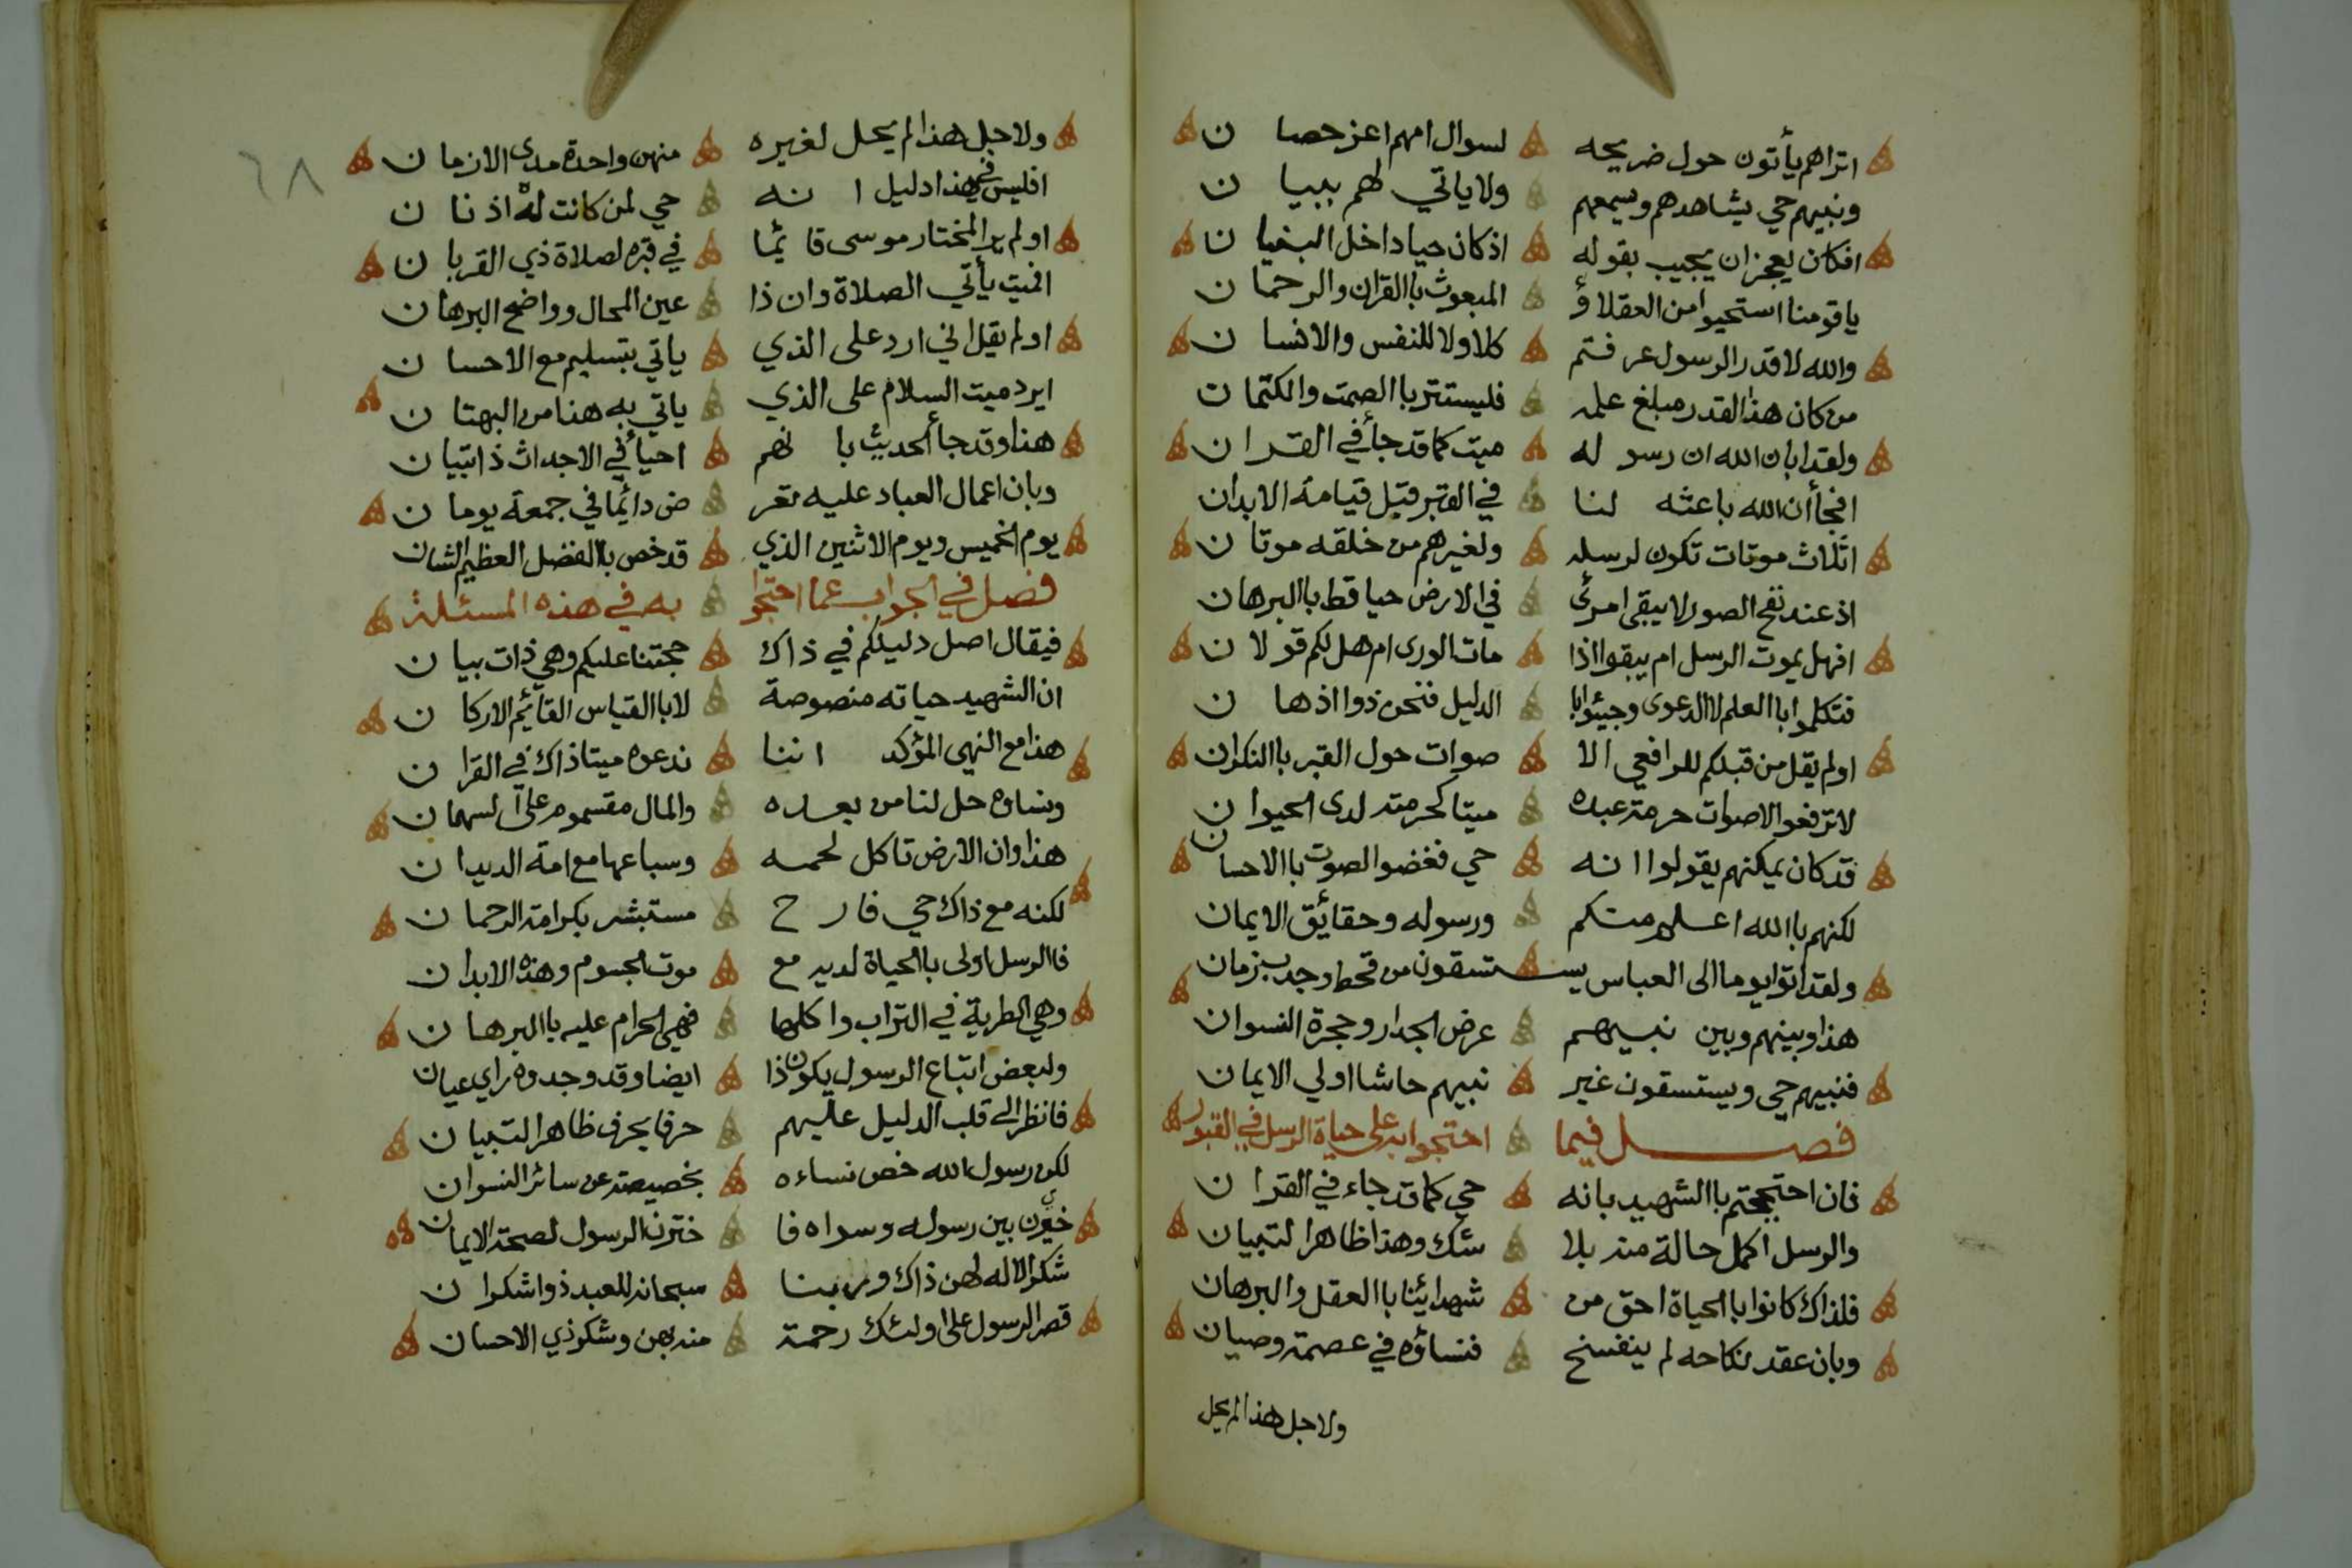 اتراهم يأتون حول ضريحه لسوال امهم اعز حصان
ونبيهم حي يشاهدهم ويسمعهم ولا ياتي لهم ببيان
افكان يعجز ان يجيب بقوله اذ كان حيا داخل البنيان
يا قومنا استحيوا من العقلاؤ المبعوث باالقران والرحمان
والله لا قدر الرسول عرفتم كلا ولا للنفس والانسان
من كان هذا القدر مبلغ علمه فليستتر باالصمت والكتمان
ولقد ابان الله ان رسوله ميت كما قد جأ في القران
افجأ أن الله باعثه لنا في القبر قبل قيامة الابدان
اثلاث موتات تكون لرسله ولغيرهم من خلقه موتان
اذ عند نفخ الصور لا يبقى امرئ في الارض حيا قط باالبرهان
افهل يموت الرسل ام يبقوا اذا مات الورى ام هل لكم قولان
فتكلموا باالعلم لا الدعوى وجيئوا با الدليل فنحن ذوا اذهان
اولم يقل من قبلكم للرافعي الا صوات حول القبر باالنكران
لا ترفعوا الاصوات حرمة عبده ميتا كحرمته لدى الحيوان
قد كان يمكنهم يقولوا انه حي فغضوا الصوت باالاحسان
لكنهم باالله اعلم منكم ورسوله وحقائق الايمان
ولقد اتوا يوما الى العباس يستسقون من قحط وجدب زمان
هذا وبينهم وبين نبيهم عرض الجدار وحجرة النسوان
فنبيهم حي ويستسقون غير نبيهم حاشا اولي الايمان
فصل فيما احتجوا به على حياة الرسل في القبور
فان احتججتم باالشهيد بانه حي كما قد جاء في القران
والرسل اكمل حالة منه بلا شك وهذا ظاهر التبيان
فلذاك كانوا باالحياة احق من شهدائنا باالعقل والبرهان
وبان عقد نكاحه لم ينفسخ فنساؤه في عصمة وصيان
ولاجل هذا لم يحل
٦٨
ولاجل هذا لم يحل لغيره منهن واحدة مدى الازمان
افليس في هذا دليل انه حي لمن كانت له اذنان
اولم ير المختار موسى قائما في قبره لصلاة ذي القربان
افميت يأتي الصلاة وان ذا عين المحال وواضح البرهان
اولم يقل اني ارد على الذي ياتي بتسليم مع الاحسان
ايرد ميت السلام على الذي ياتي به هذا من البهتان
هذا وقد جأ الحديث بانهم احيأ في الاجداث ذا تبيان
وبان اعمال العباد عليه تعر ض دائما في جمعة يومان
يوم الخميس ويوم الاثنين الذي قد خص باالفضل العظيم الشان
فصل في الجواب عما احتجوا به في هذه المسئلة
فيقال اصل دليلكم في ذاك حجتنا عليكم وهي ذات بيان
ان الشهيد حياته منصوصة لا باالقياس القائم الاركان
هذا مع النهي المؤكد اننا ندعوه ميتا ذاك في القران
ونساوه حل لنا من بعده والمال مقسموم على السهمان
هذا وان الارض تاكل لحمه وسباعها مع امة الديدان
لكنه مع ذاك حي فارح مستبشر بكرامة الرحمان
فاالرسل اولى باالحياة لديه مع موت الجسوم وهذه الابدان
وهي الطرية في التراب واكلها فهي الحرام عليه باالبرهان
ولبعض اتباع الرسول يكون ذا ايضا وقد وجدوه راي عيان
فانظر الى قلب الدليل عليهم حرفا بحرف ظاهر التبيان
لكن رسول الله خص نساءه بخصيصة عن سائر النسوان
خيرن بين رسوله وسواه فا خترن الرسول لصحة الايمان
شكر الاله لهن ذاك وربنا سبحانه للعبد ذوا شكران
قصر الرسول على اولئك رحمة منه بهن وشكر ذي الاحسان